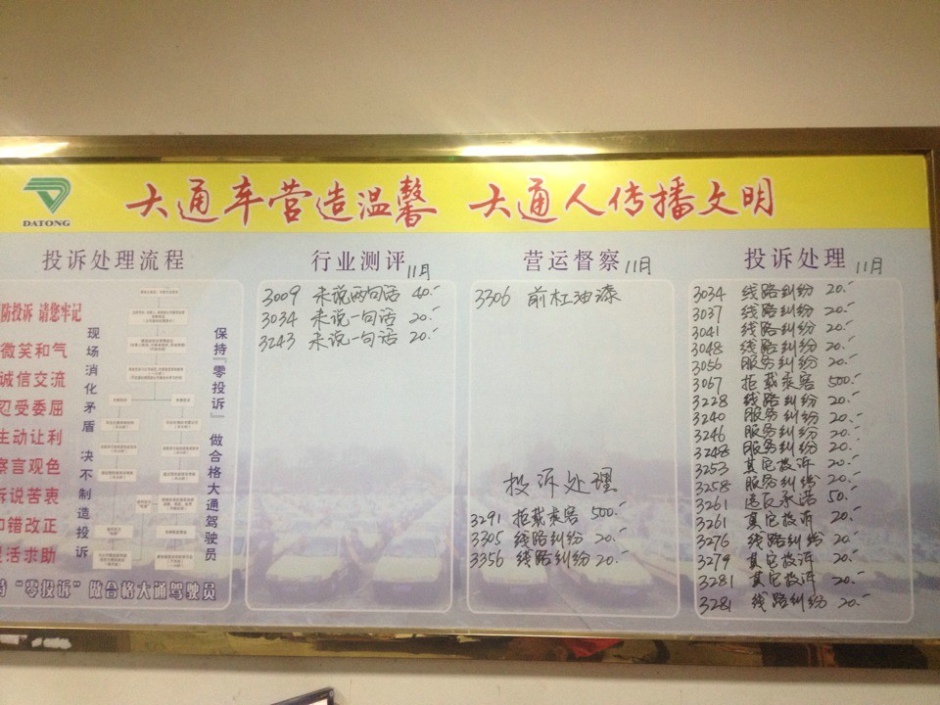 大通车营造温馨 大通人传播文明
DATONG
投诉处理流程
防投诉 请您牢记
微笑和气
诚信交流
忍受委屈
主动让利
察言观色
诉说苦衷
知错改正
灵活求助
现场消化矛盾 决不制造投诉
保持“零投诉” 做合格大通驾驶员
持“零投诉”做合格大通驾驶员
行业测评 11月
3009 未说两句话 40.-
3034 未说一句话 20.-
3243 未说一句话 20.-
营运督察 11月
3306 前杠油漆
投诉处理
3291 拒载乘客 500.-
3305 线路纠纷 20.-
3356 线路纠纷 20.-
投诉处理 11月
3034 线路纠纷 20.-
3037 线路纠纷 20.-
3041 线路纠纷 20.-
3048 线路纠纷 20.-
3056 服务纠纷 20.-
3067 拒载乘客 500.-
3228 线路纠纷 20.-
3240 服务纠纷 20.-
3246 服务纠纷 20.-
3248 服务纠纷 20.-
3253 其它投诉 20.-
3258 服务纠纷 20.-
3261 违反承诺 50.-
3261 其它投诉 20.-
3276 线路纠纷 20.-
3279 其它投诉 20.-
3281 其它投诉 20.-
3281 线路纠纷 20.-